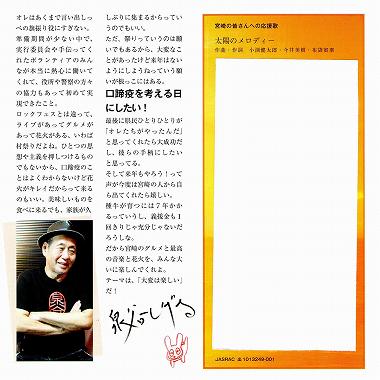 オレはあくまで言い出しっ
ぺの旗振り役にすぎない。
準備期間が少ない中で、
実行委員会や手伝ってく
れたボランティアのみん
なが本当に熱心に働いて
くれて、役所や警察の方々
の協力もあって初めて実
現できたこと。
ロックフェスとは違って、
ライブがあってグルメが
あって花火がある、いわば
村祭りだよね。ひとつの思
想や主義を押しつけるもの
でもないから、口蹄疫のこ
とはよくわからないけど花
火がキレイだからって来る
のもいい。美味しいものを
食べに来るでも、家族が久
しぶりに集まるからってい
うのでもいい。
ただ、祭りっていうのは願
いでもあるから、大変なこ
とがあったけど来年はない
ようにしようねっていう願
いが根っこにはある。
口蹄疫を考える日
にしたい!
最後に県民ひとりひとりが
「オレたちがやったんだ」
と思ってくれたら大成功だ
し、彼らの手柄にしたい
と思ってる。
そして来年もやろう!って
声が今度は宮崎の人から自
ら出てくれたら嬉しい。
種牛が育つには7年かか
るっていうし、義援金も1
回きりじゃ充分じゃないだ
ろうしな。
だから宮崎のグルメと最高
の音楽と花火を、みんな大
いに楽しんでくれよ。
テーマは、「大変は楽しい」
だ!
泉谷しげる
宮崎の皆さんへの応援歌
太陽のメロディー
作曲・作詞 小渕健太郎・今井美樹・布袋寅泰
JASRAC 出1013249-001